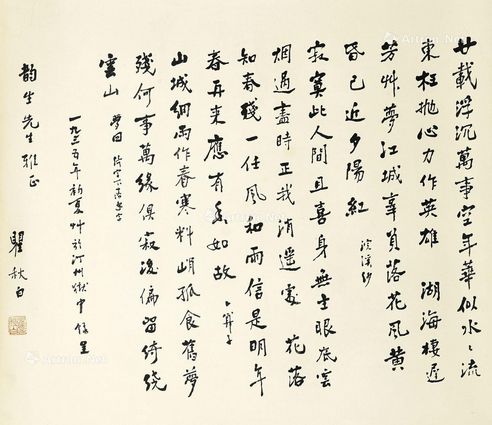 廿載浮沉萬事空年華似水〻流
東枉拋心力作英雄湖海棲遲
芳艸夢江城辜負落花風黃
昏已近夕陽紅 浣溪紗
寂寞此人間且喜身無主眼底雲
烟過盡時正我消遥處 花落
知春殘一任風和雨信是明年
春再来應有香如故 卜算子
山城細雨作春寒料峭孤衾舊夢
殘何事萬緣俱寂後偏留綺繞
雲山 夢回 綺字下落思字
一九三五年初夏艸於汀州獄中
韵生先生雅正
瞿秋白